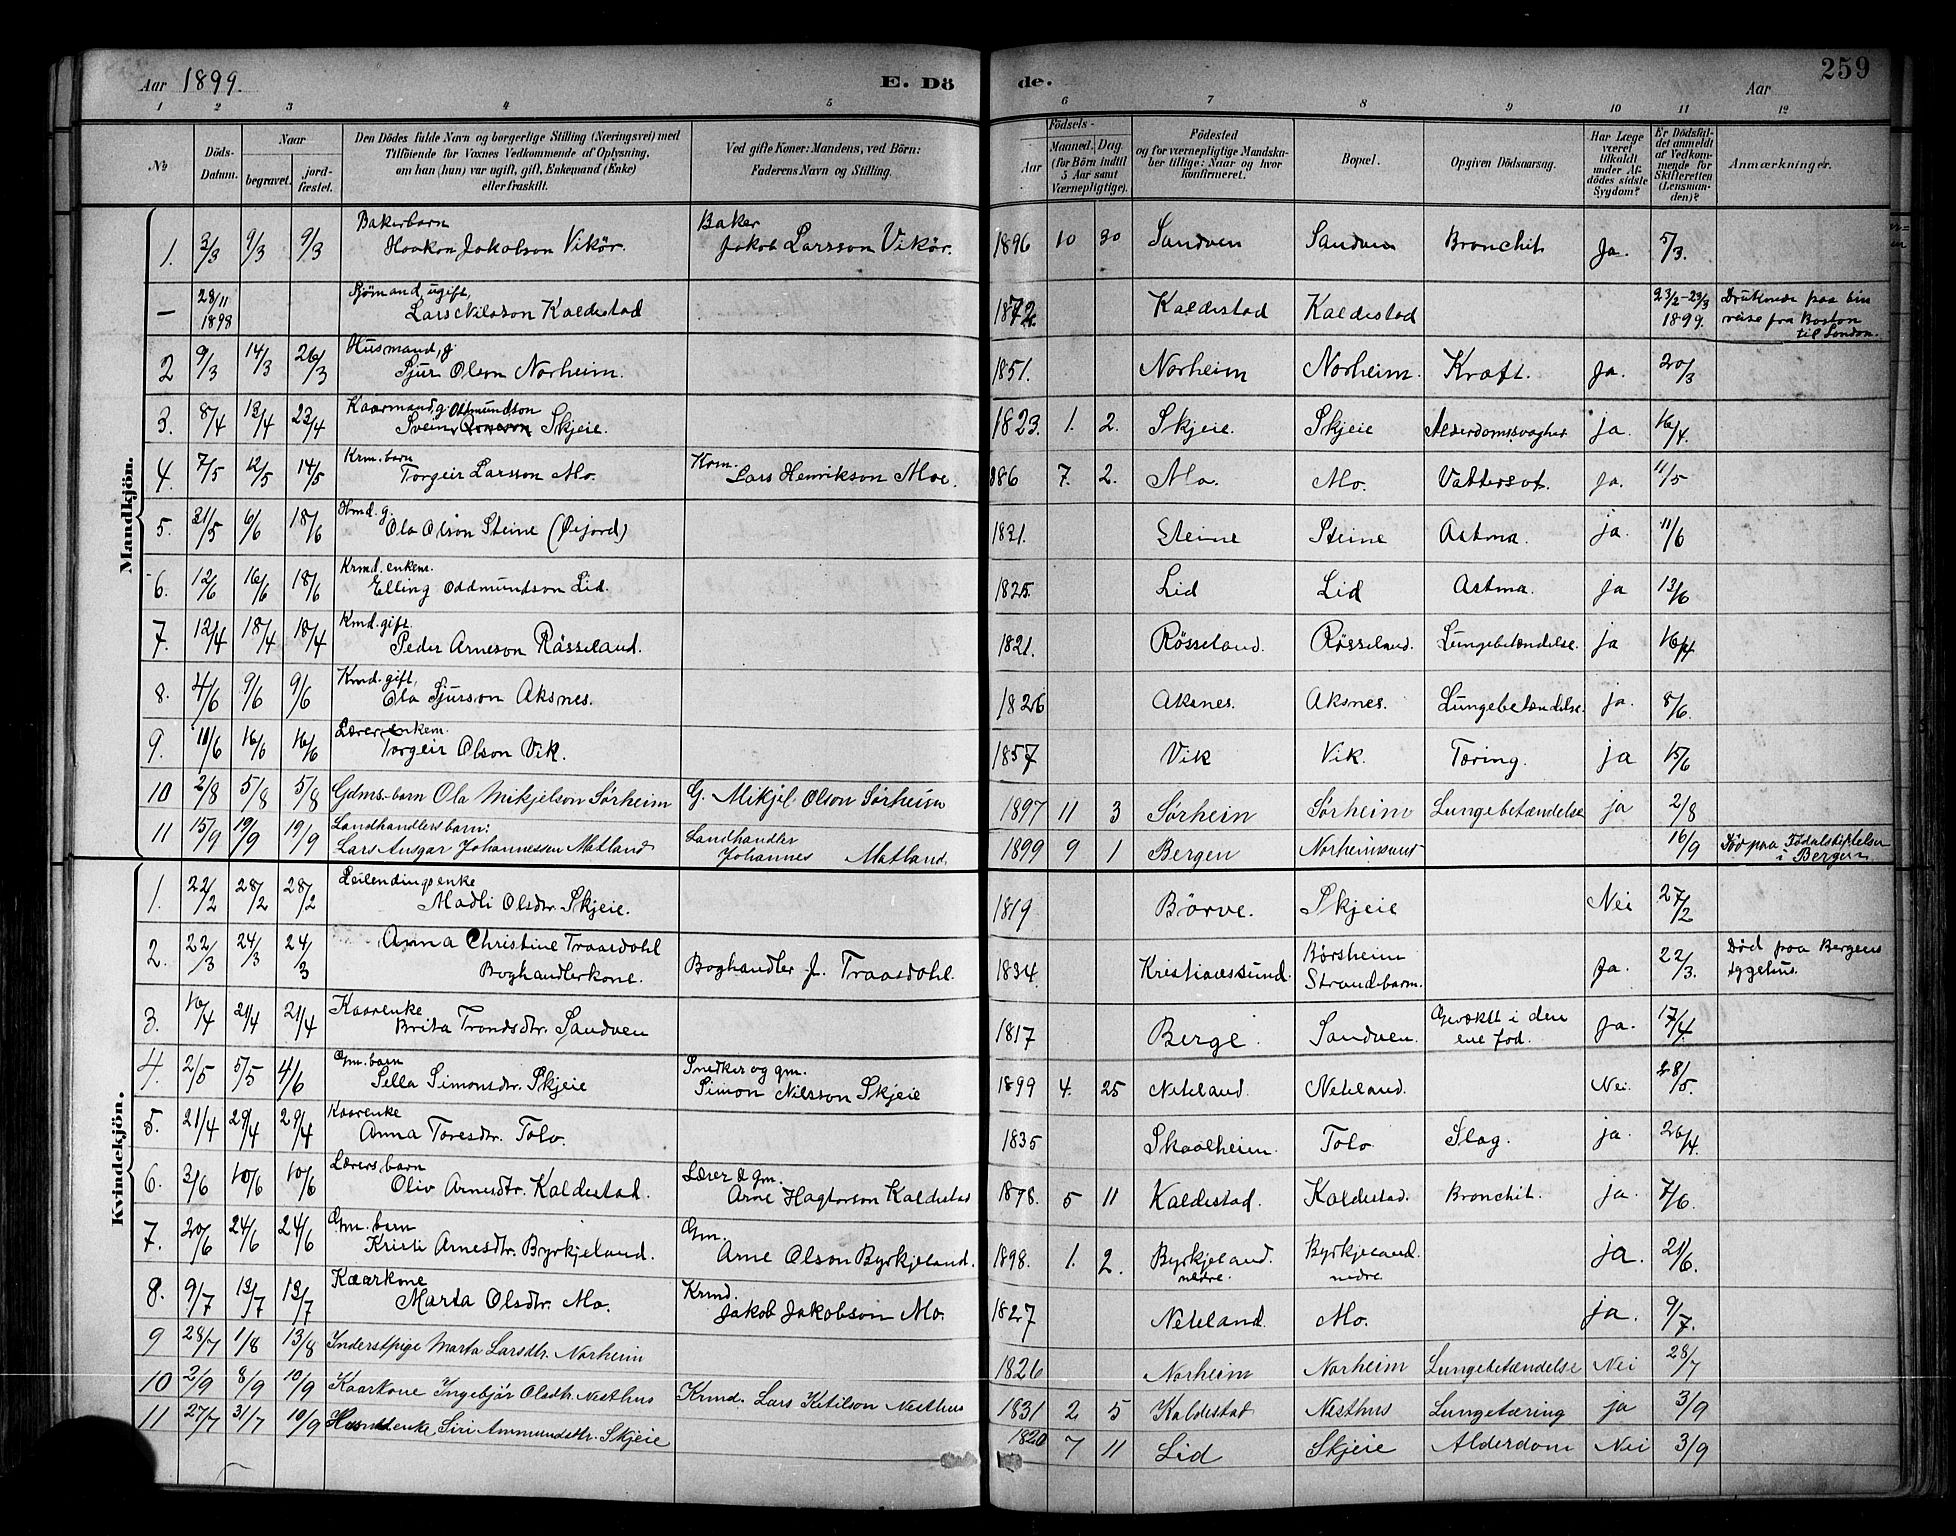 Aar 1899. E. Dö de. Aar 259
1 2 3 4 5 6 7 8 9 10 11 12
No Döds-Datum. Naar begravet. jordfæstet. Den Dödes fulde Navn og borgerlige Stilling (Næringsvei) med Tilföiende for Voxnes Vedkommende af Oplysning, om han (hun) var ugift, gift, Enkemand (Enke) eller fraskilt. Ved gifte Koner: Mandens, ved Börn: Faderens Navn og Stilling. Födsels- Aar Maaned. Dag. (for Börn indtil 5 Aar samt Værnepligtige). Födested og for værnepligtige Mandskaber tillige: Naar og hvor konfirmeret. Bopæl. Opgiven Dödsaarsag. Har Læge været tilkaldt under Afdödes sidste Sygdom? Er Dödsfaldet anmeldt af Vedkommende for Skifteretten (Lensmanden)? Anmærkninger.
Mandkjön.
1. 3/3 9/3 9/3 Bakerbarn Haakon Jakobson Vikör. Baker Jakob Larsson Vikör. 1896 10 30 Sandven Sandven Bronchit Ja. 5/3.
— 28/11 1898 Sjömand, ugift, Lars Nilsson Kaldestad 1872. Kaldestad Kaldestad 23/2-23/3 1899. Druknede paa en reise fra Boston til London.
2 9/3 14/3 26/3 Husmand, g. Sjur Olson Norheim. 1851. Norheim Norheim. Kræft. Ja. 20/3
3. 8/4 13/4 23/4 Kaarmand, g. Oddmundson Svein Skjeie. 1823. 1. 2. Skjeie. Skjeie Alderdomssvaghet ja. 16/4.
4. 7/5 12/5 14/5 Krm. barn Torgeir Larsson Mo. Krm. Lars Henrikson Moe. 886 7. 2. Mo. Mo. Vattersot. ja. 11/5
5. 31/5 6/6 18/6 Hmd. g. Ola Olson Steine (Öifjord) 1831. Steine Steine Astma. ja. 11/6
6. 12/6 16/6 18/6 Krmd. enkem. Elling Oddmundson Lid. 1825. Lid Lid Astma. ja 13/6
7. 12/4 18/4 18/4 Kmd. gift Peder Arneson Rösseland. 1821. Rösseland. Rösseland. Lungebetændelse. ja 16/4
8. 4/6 9/6 9/6 Kmd. gift, Ola Sjurson Aksnes. 1826 Aksnes. Aksnes. Lungebetændelse. ja. 8/6.
9. 11/6 16/6 16/6 Lærer, enkem. Torgeir Olson Vik. 1857 Vik Vik. Tæring. ja 15/6
10 2/8 5/8 5/8 Gdms.-barn Ola Mikjelson Sørheim G. Mikjel Olson Sørheim 1897 11 3 Sørheim Sørheim Lungebetændelse ja 2/8
11 15/9 19/9 19/9 Landhandlers barn: Lars Ansgar Johannessen Matland Landhandler Johannes Matland. 1899 9 1 Bergen Norheimsund 16/9 Død paa Fødselsstiftelsen i Bergen
Kvindekjön.
1. 22/2 28/2 28/2 Leilendingsenke Madli Olsdtr. Skjeie. 1819 Börve. Skjeie Nei 27/2
2. 22/3 24/3 24/3 Anna Christine Traasdahl Boghandlerkone. Boghandler J. Traasdahl. 1834. Kristianssund. Børsheim Strandebarm. Ja. 22/3. Død paa Bergens sygehus.
3. 16/4 21/4 21/4 Kaarenke Brita Trondsdtr. Sandven 1817 Berge. Sandven. Gevækst i den ene fod. Ja. 17/4.
4. 2/5 5/5 4/6 Gm. barn Sella Simonsdtr. Skjeie Snedker og gm. Simon Nilsson Skjeie 1899 4. 25 Neteland. Neteland. Nei. 28/5.
5. 21/4 29/4 29/4 Kaarenke Anna Toresdtr. Tolo. 1835 Skaalheim. Tolo Slag. ja. 26/4.
6. 3/6 10/6 10/6 Lærers barn Oliv Arnesdtr. Kaldestad. Lærer & gm. Arne Hagtorson Kaldestad 1898. 5 11 Kaldestad. Kaldestad. Bronchit. ja. 7/6.
7. 20/6 24/6 24/6 Gm. barn Kristi Arnesdtr. Byrkjeland. Gm. Arne Olson Byrkjeland. 1898. 1. 2. Byrkjeland. nedre. Byrkjeland. nedre ja. 21/6.
8. 9/7 13/7 13/7 Kaarkone Marta Olsdtr. Mo. Krmd. Jakob Jakobson Mo. 1827 Neteland. Mo. ja. 9/7.
9 28/7 1/8 13/8 Inderstpige Marta Larsdtr. Norheim 1826 Norheim Norheim Lungebetændelse Nei 28/7
10 2/9 8/9 10/9 Kaarkone Ingebjör Olsdtr. Nesthus Krmd. Lars Ketilson Nesthus 1831 2 5 Kaldestad Nesthus Lungetæring ja 3/9
11 27/7 31/7 10/9 Husmdenke Siri Ammundsdtr. Skjeie 1820 7 11 Lid Skjeie Alderdom Nei 3/9